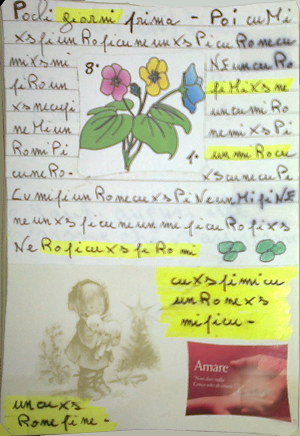 Pochi giorni prima - Poi cu Mi
xs fi un Ro fi cu ne un xs Pi cu Ro ne cu
mi xs mi
NE un cu Ro
fi Ro un
fi Mi xs ne
xs ne cu fi
un cu mi Ro
ne Mi un
ne mi xs Pi
Ro mi Pi
un mi Ro cu
cu ne Ro-
xs cu ne cu Pi
8:
f.
Cu mi fi un Ro ne cu xs Pi Ne un Mi fi NE
ne un xs fi cu ne un me fi cu Ro fi xs
Ne Ro fi cu xs fi Ro mi
cu xs fi mi cu
un Ro ne xs
mi fi cu -
Amare
un cu xs
Ro ne fi ne.